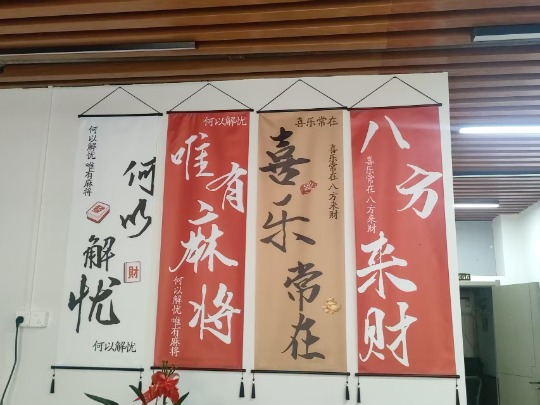 何以解忧 唯有麻将
何以解忧
財
何以解忧
何以解忧
唯有麻将
何以解忧 唯有麻将
喜乐常在
喜乐常在
喜乐常在 八方来财
八方来财
喜乐常在 八方来财